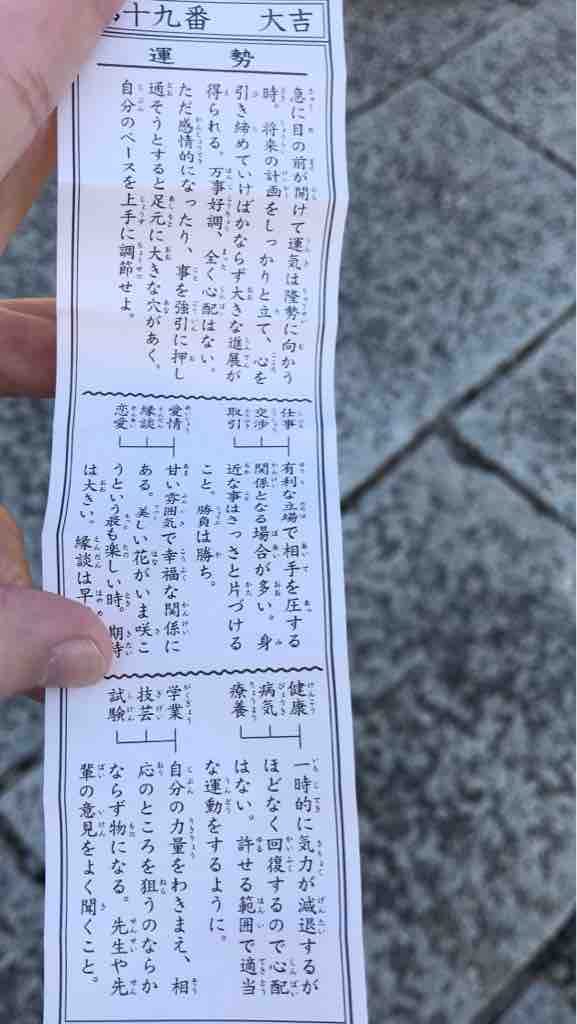 十九番　大吉
運勢
急に目の前が開けて運気は隆勢に向かう
時。将来の計画をしっかりと立て、心を
引き締めていけばかならず大きな進展が
得られる。万事好調、全く心配はない。
ただ感情的になったり、事を強引に押し
通そうとすると足元に大きな穴があく。
自分のペースを上手に調節せよ。
仕事
交渉
取引
有利な立場で相手を圧する
関係となる場合が多い。身
近な事はさっさと片づける
こと。勝負は勝ち。
愛情
縁談
恋愛
甘い雰囲気で幸福な関係に
ある。美しい花がいま咲こ
うという最も楽しい時。期待
は大きい。縁談は早
健康
病気
療養
一時的に気力が減退するが
ほどなく回復するので心配
はない。許せる範囲で適当
な運動をするように。
学業
技芸
試験
自分の力量をわきまえ、相
応のところを狙うのならか
ならず物になる。先生や先
輩の意見をよく聞くこと。